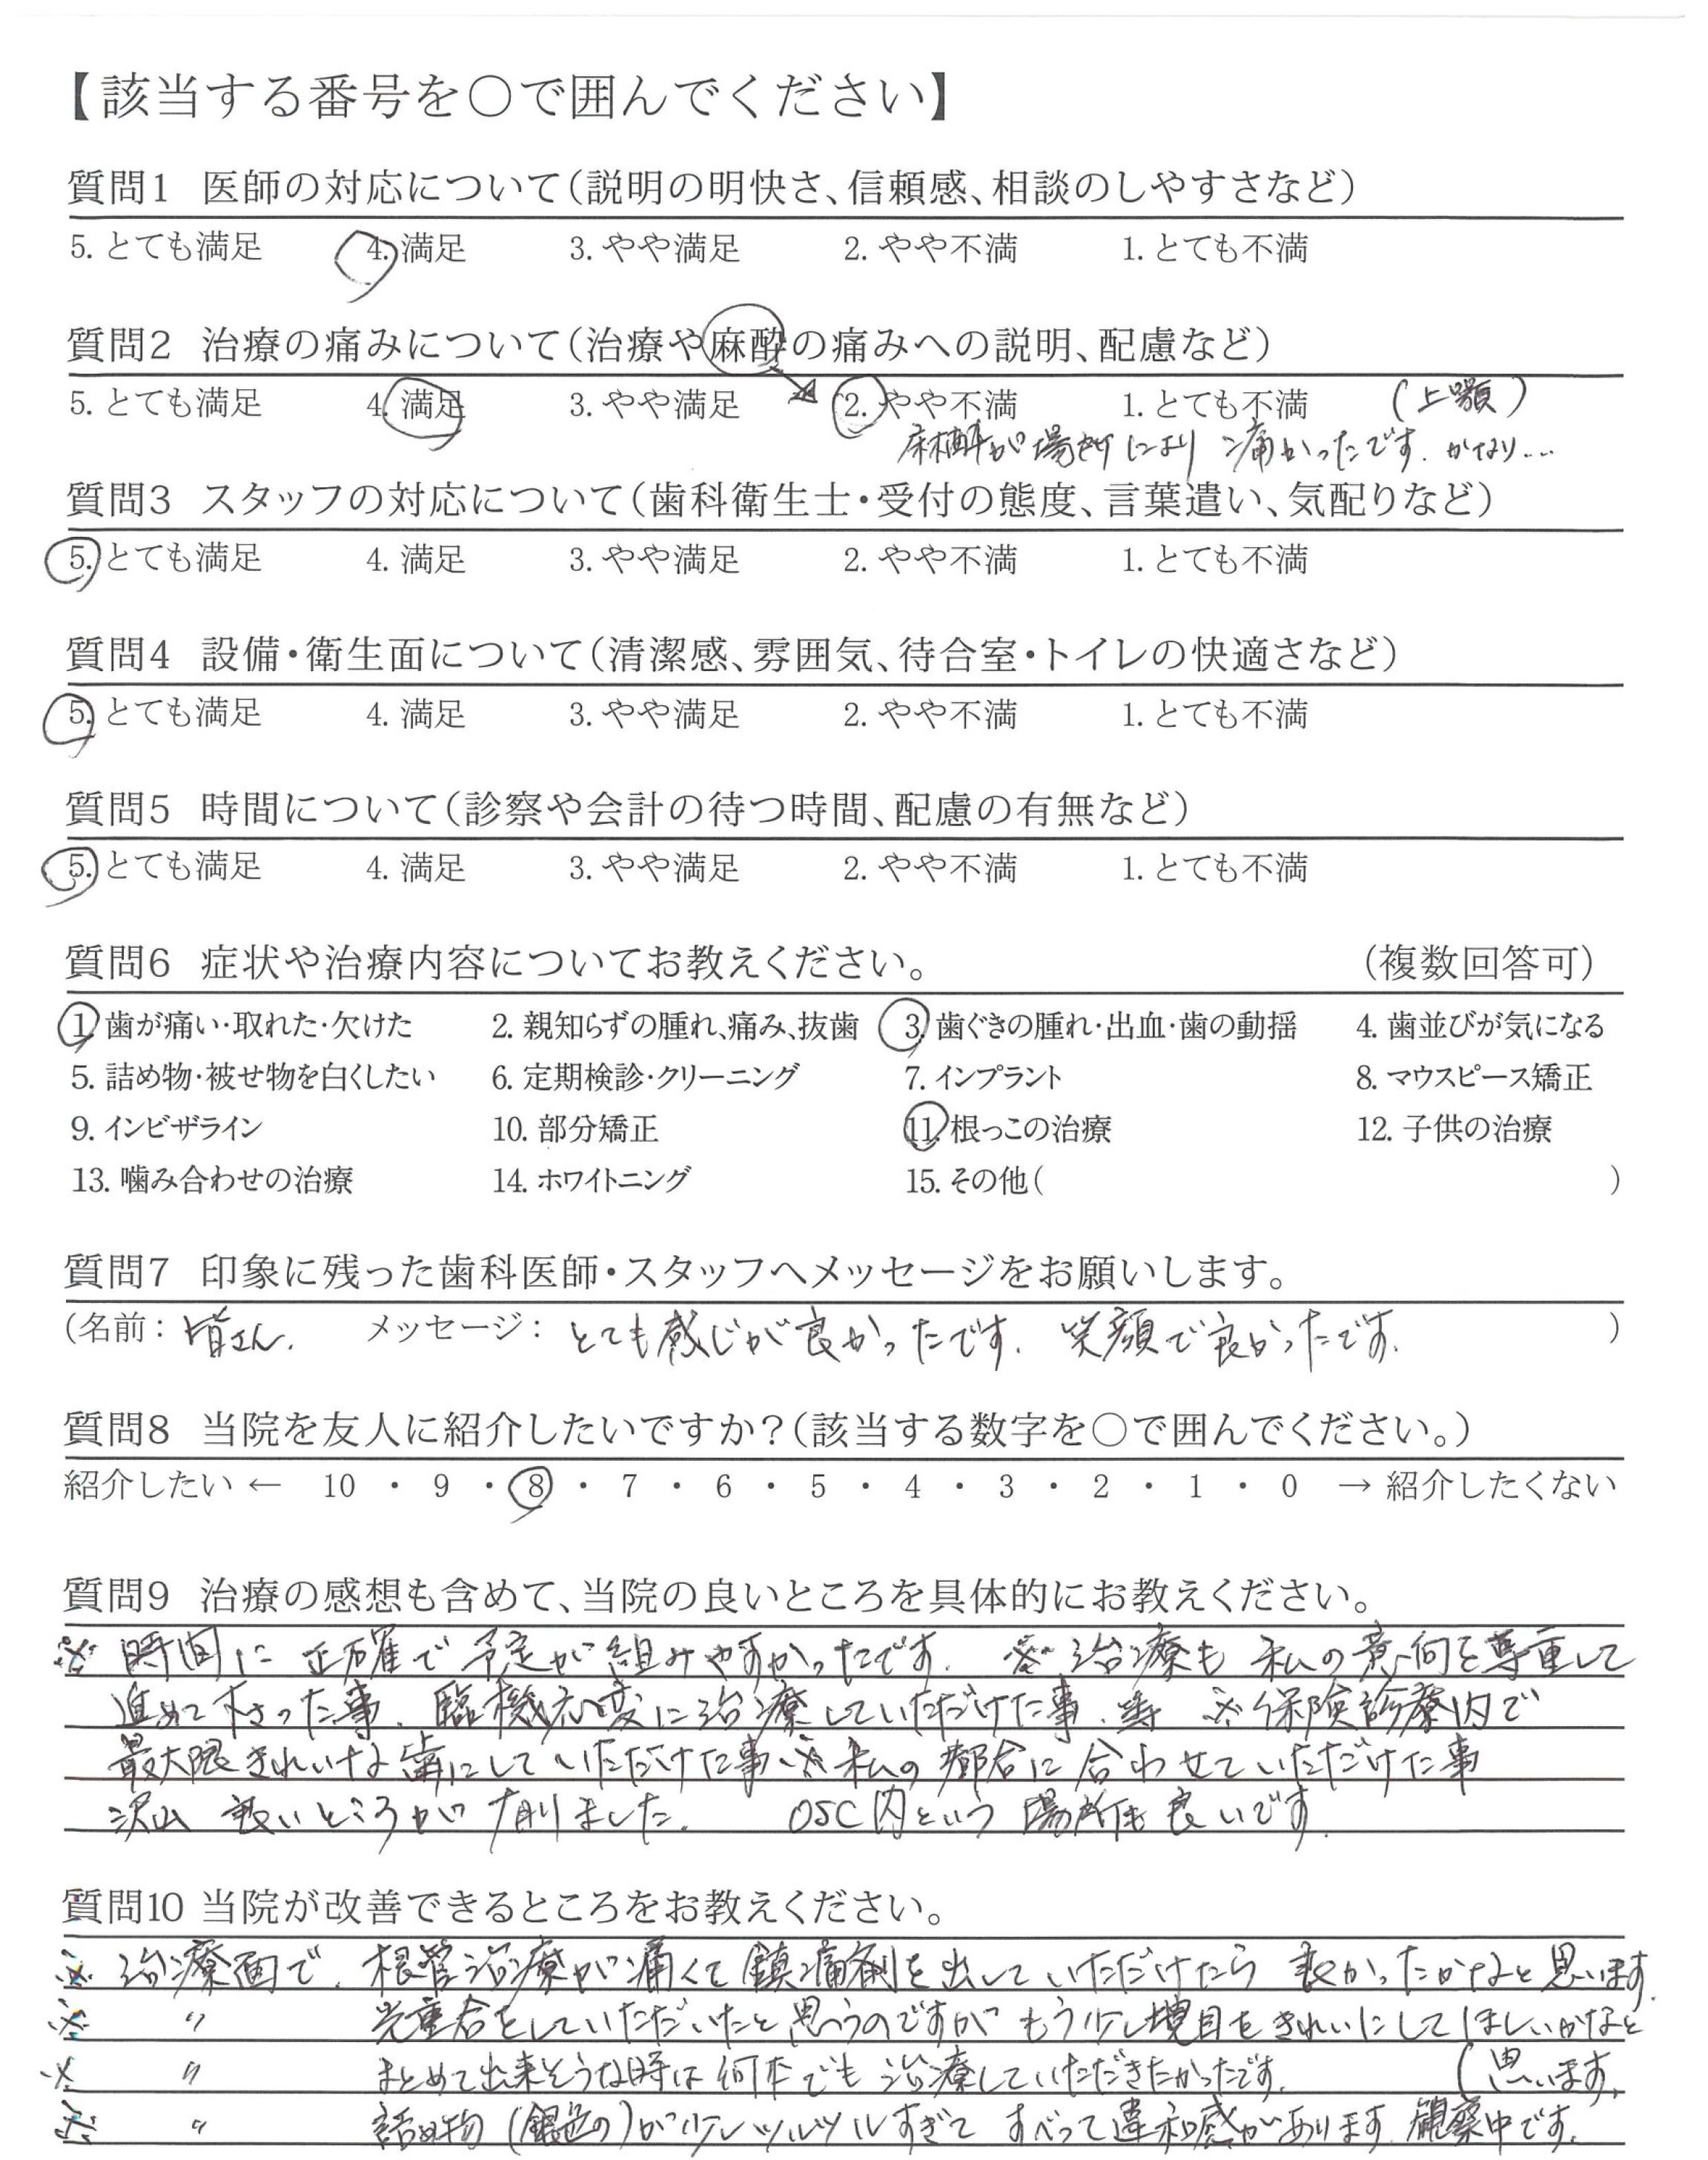 【該当する番号を○で囲んでください】
質問1 医師の対応について(説明の明快さ、信頼感、相談のしやすさなど)
5. とても満足 4. 満足 3. やや満足 2. やや不満 1. とても不満
質問2 治療の痛みについて(治療や麻酔の痛みへの説明、配慮など)
5. とても満足 4. 満足 3. やや満足 2. やや不満 1. とても不満 (上顎)
麻酔が場所により痛かったです. かなり…
質問3 スタッフの対応について(歯科衛生士・受付の態度、言葉遣い、気配りなど)
5. とても満足 4. 満足 3. やや満足 2. やや不満 1. とても不満
質問4 設備・衛生面について(清潔感、雰囲気、待合室・トイレの快適さなど)
5. とても満足 4. 満足 3. やや満足 2. やや不満 1. とても不満
質問5 時間について(診察や会計の待つ時間、配慮の有無など)
5. とても満足 4. 満足 3. やや満足 2. やや不満 1. とても不満
質問6 症状や治療内容についてお教えください。 (複数回答可)
1. 歯が痛い・取れた・欠けた 2. 親知らずの腫れ、痛み、抜歯 3. 歯ぐきの腫れ・出血・歯の動揺 4. 歯並びが気になる
5. 詰め物・被せ物を白くしたい 6. 定期検診・クリーニング 7. インプラント 8. マウスピース矯正
9. インビザライン 10. 部分矯正 11. 根っこの治療 12. 子供の治療
13. 噛み合わせの治療 14. ホワイトニング 15. その他( )
質問7 印象に残った歯科医師・スタッフへメッセージをお願いします。
(名前: 皆さん. メッセージ: とても感じが良かったです. 笑顔で良かったです. )
質問8 当院を友人に紹介したいですか?(該当する数字を○で囲んでください。)
紹介したい ← 10 ・ 9 ・ 8 ・ 7 ・ 6 ・ 5 ・ 4 ・ 3 ・ 2 ・ 1 ・ 0 → 紹介したくない
質問9 治療の感想も含めて、当院の良いところを具体的にお教えください。
※ 時間に正確で予定が組みやすかったです. ※ 治療も私の意向を尊重して
進めて下さった事. 臨機応変に治療していただけた事. 等 ※ 保険診療内で
最大限きれいな歯にしていただけた事 ※ 私の都合に合わせていただけた事
沢山 良いところが有りました. OSC内という場所も良いです.
質問10 当院が改善できるところをお教えください。
※ 治療面で. 根管治療が痛くて鎮痛剤を出していただけたら 良かったかなと思います.
※ 〃 光重合をしていただいたと思うのですが もう少し境目をきれいにしてほしいかなと
※ 〃 まとめて出来そうな時は何本でも治療していただきたかったです. (思います.
※ 〃 詰め物(銀色の)が少しツルツルすぎて すべって違和感があります. 観察中です.